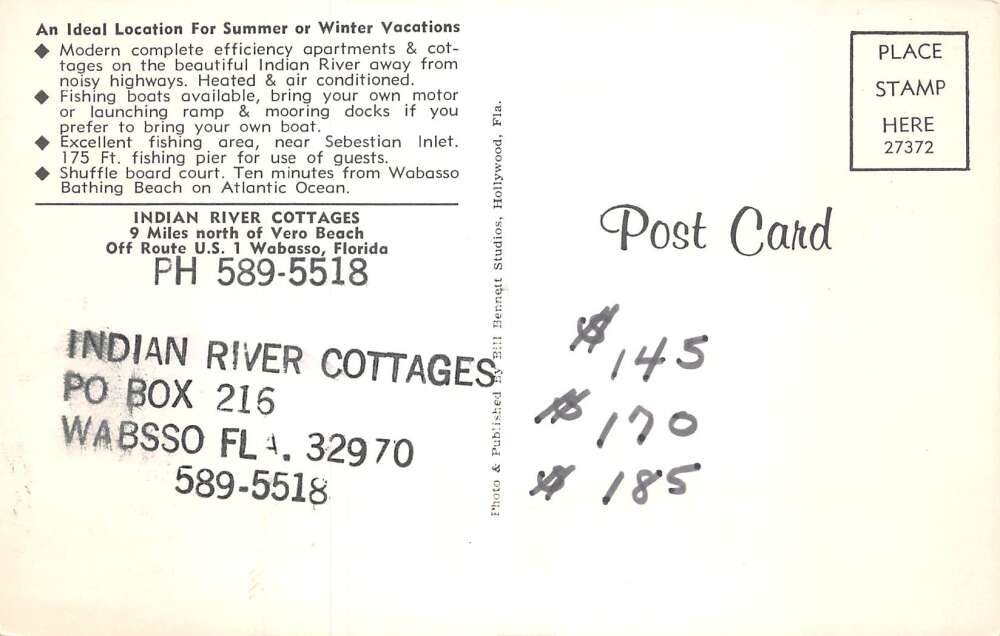 An Ideal Location For Summer or Winter Vacations
◆ Modern complete efficiency apartments & cot-
tages on the beautiful Indian River away from
noisy highways. Heated & air conditioned.
◆ Fishing boats available, bring your own motor
or launching ramp & mooring docks if you
prefer to bring your own boat.
◆ Excellent fishing area, near Sebestian Inlet.
175 Ft. fishing pier for use of guests.
◆ Shuffle board court. Ten minutes from Wabasso
Bathing Beach on Atlantic Ocean.
INDIAN RIVER COTTAGES
9 Miles north of Vero Beach
Off Route U.S. 1 Wabasso, Florida
PH 589-5518
INDIAN RIVER COTTAGES
PO BOX 216
WABSSO FLA. 32970
589-5518
Photo & Published By Bill Bennett Studios, Hollywood, Fla.
PLACE
STAMP
HERE
27372
Post Card
$ 145
$ 170
$ 185